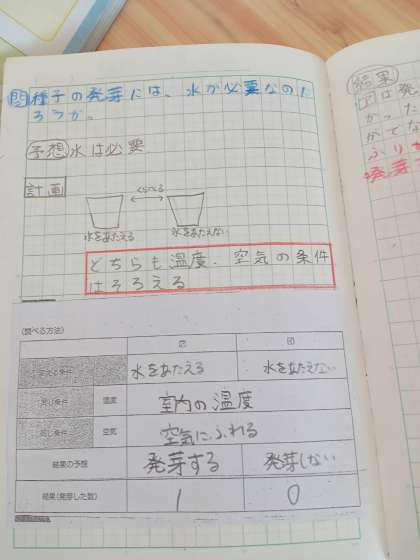 問 種子の発芽には、水が必要なのだ
ろうか。
予想 水は必要
計画
くらべる
水をあたえる
水をあたえない
どちらも温度、空気の条件
はそろえる
〈調べる方法〉
㋐ ㋑
変える条件 水をあたえる 水をあたえない
同じ条件 温度 室内の温度
同じ条件 空気 空気にふれる
結果の予想 発芽する 発芽しない
結果(発芽した数) 1 0
結果
㋐は発
かった
がでな
ふりか
発芽